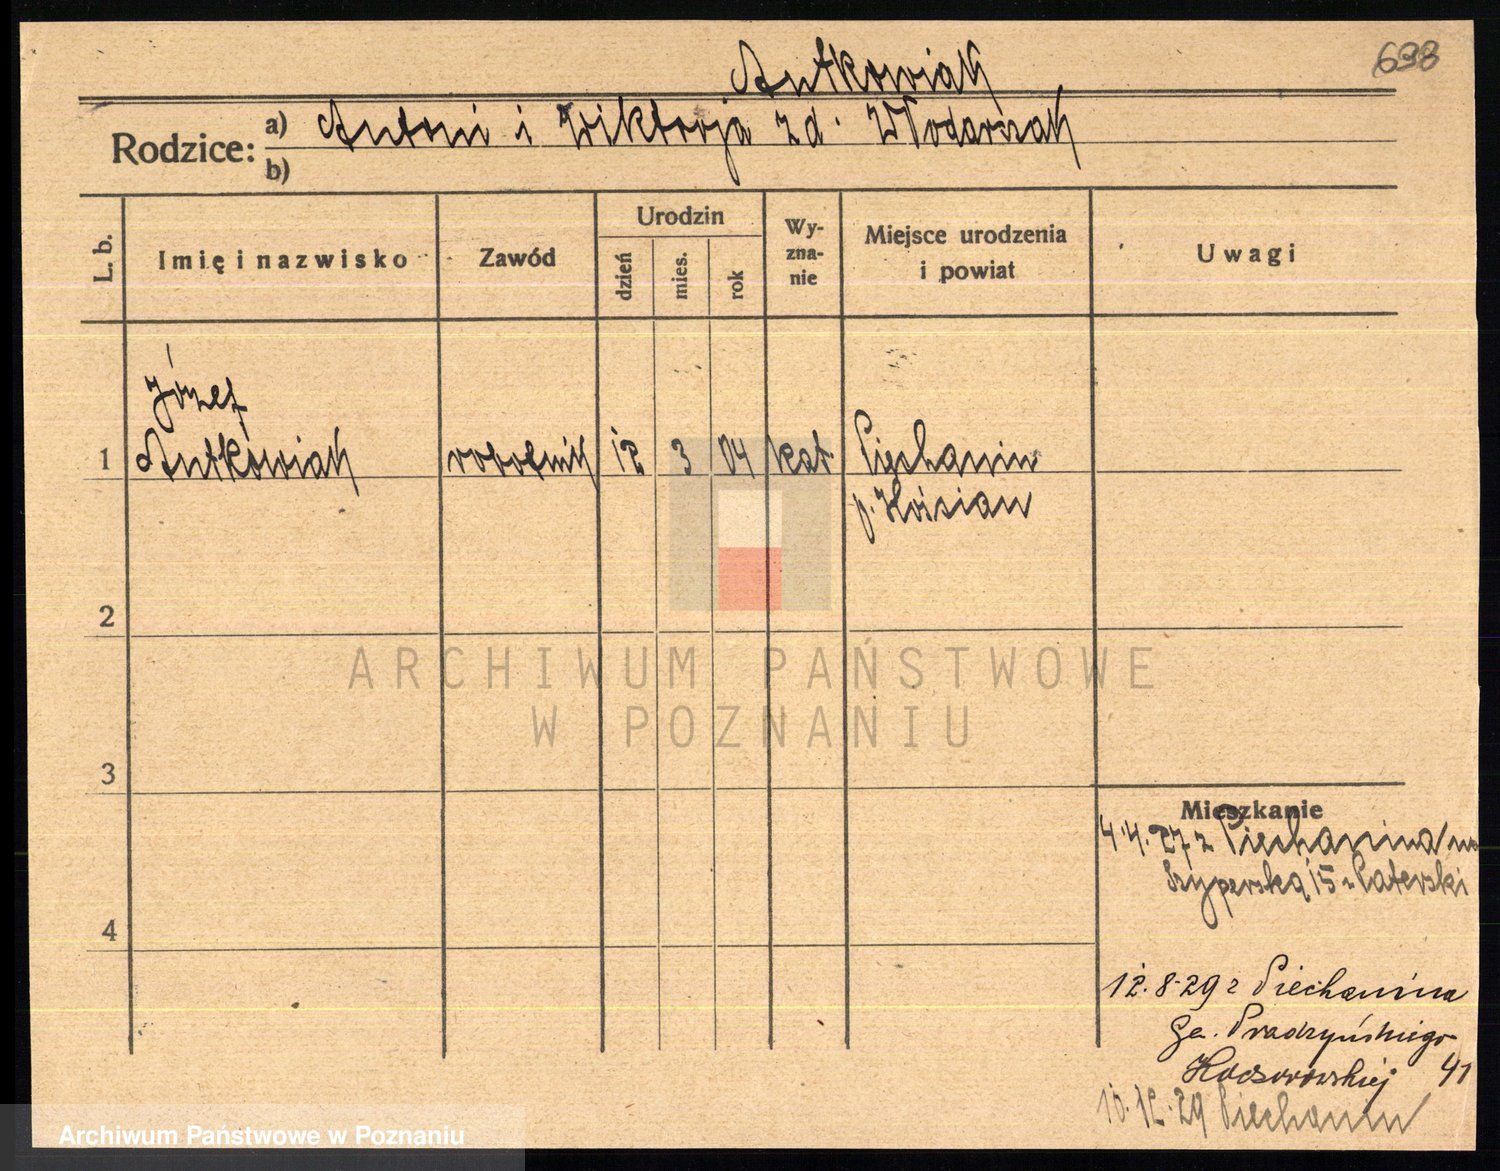 Antkowiak
698
Rodzice: a) Antoni i Wiktorja zd. Włodarczak
b)
L. b.
Imię i nazwisko
Zawód
Urodzin
dzień
mies.
rok
Wy-
zna-
nie
Miejsce urodzenia
i powiat
Uwagi
Józef
1 Antkowiak robotnik 12 3 04 kat. Piechanin
p. Kościan
2
ARCHIWUM PAŃSTWOWE
W POZNANIU
3
Mieszkanie
4.4.27 z Piechanina na
Szyperską 15 Paterski
4
12.8.29 z Piechanina
Ge. Prądzyńskiego
41
10.12.29 Piechanin
Archiwum Państwowe w Poznaniu